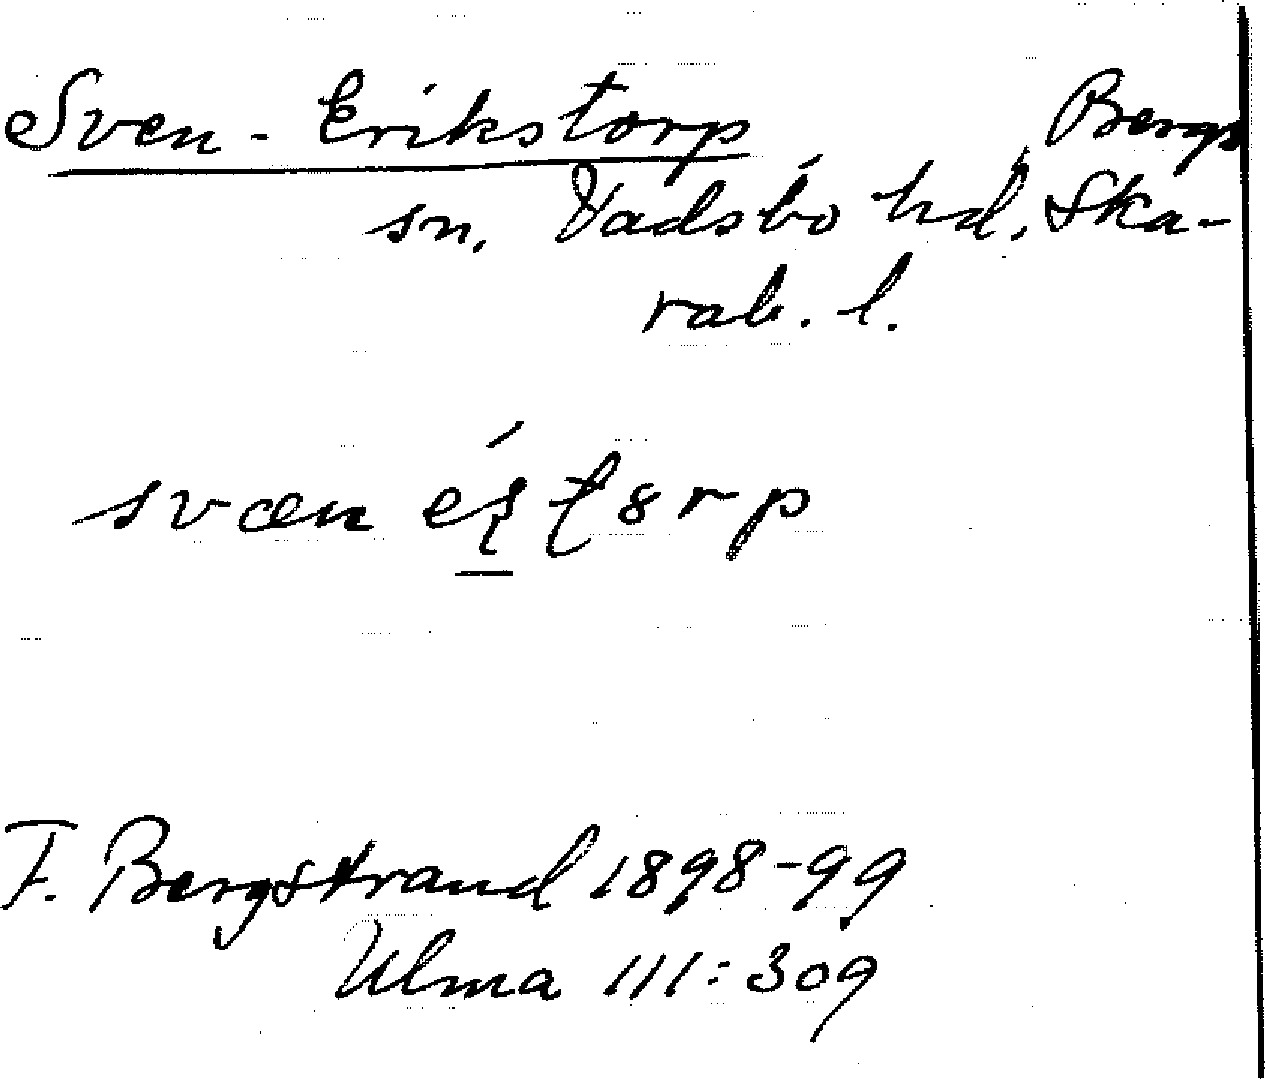 Sven-Erikstorp Bergs
sn. Vadsbo hd, Ska-
rab. l.
svæn
F. Bergstrand 1898-99
Ulma 111:309